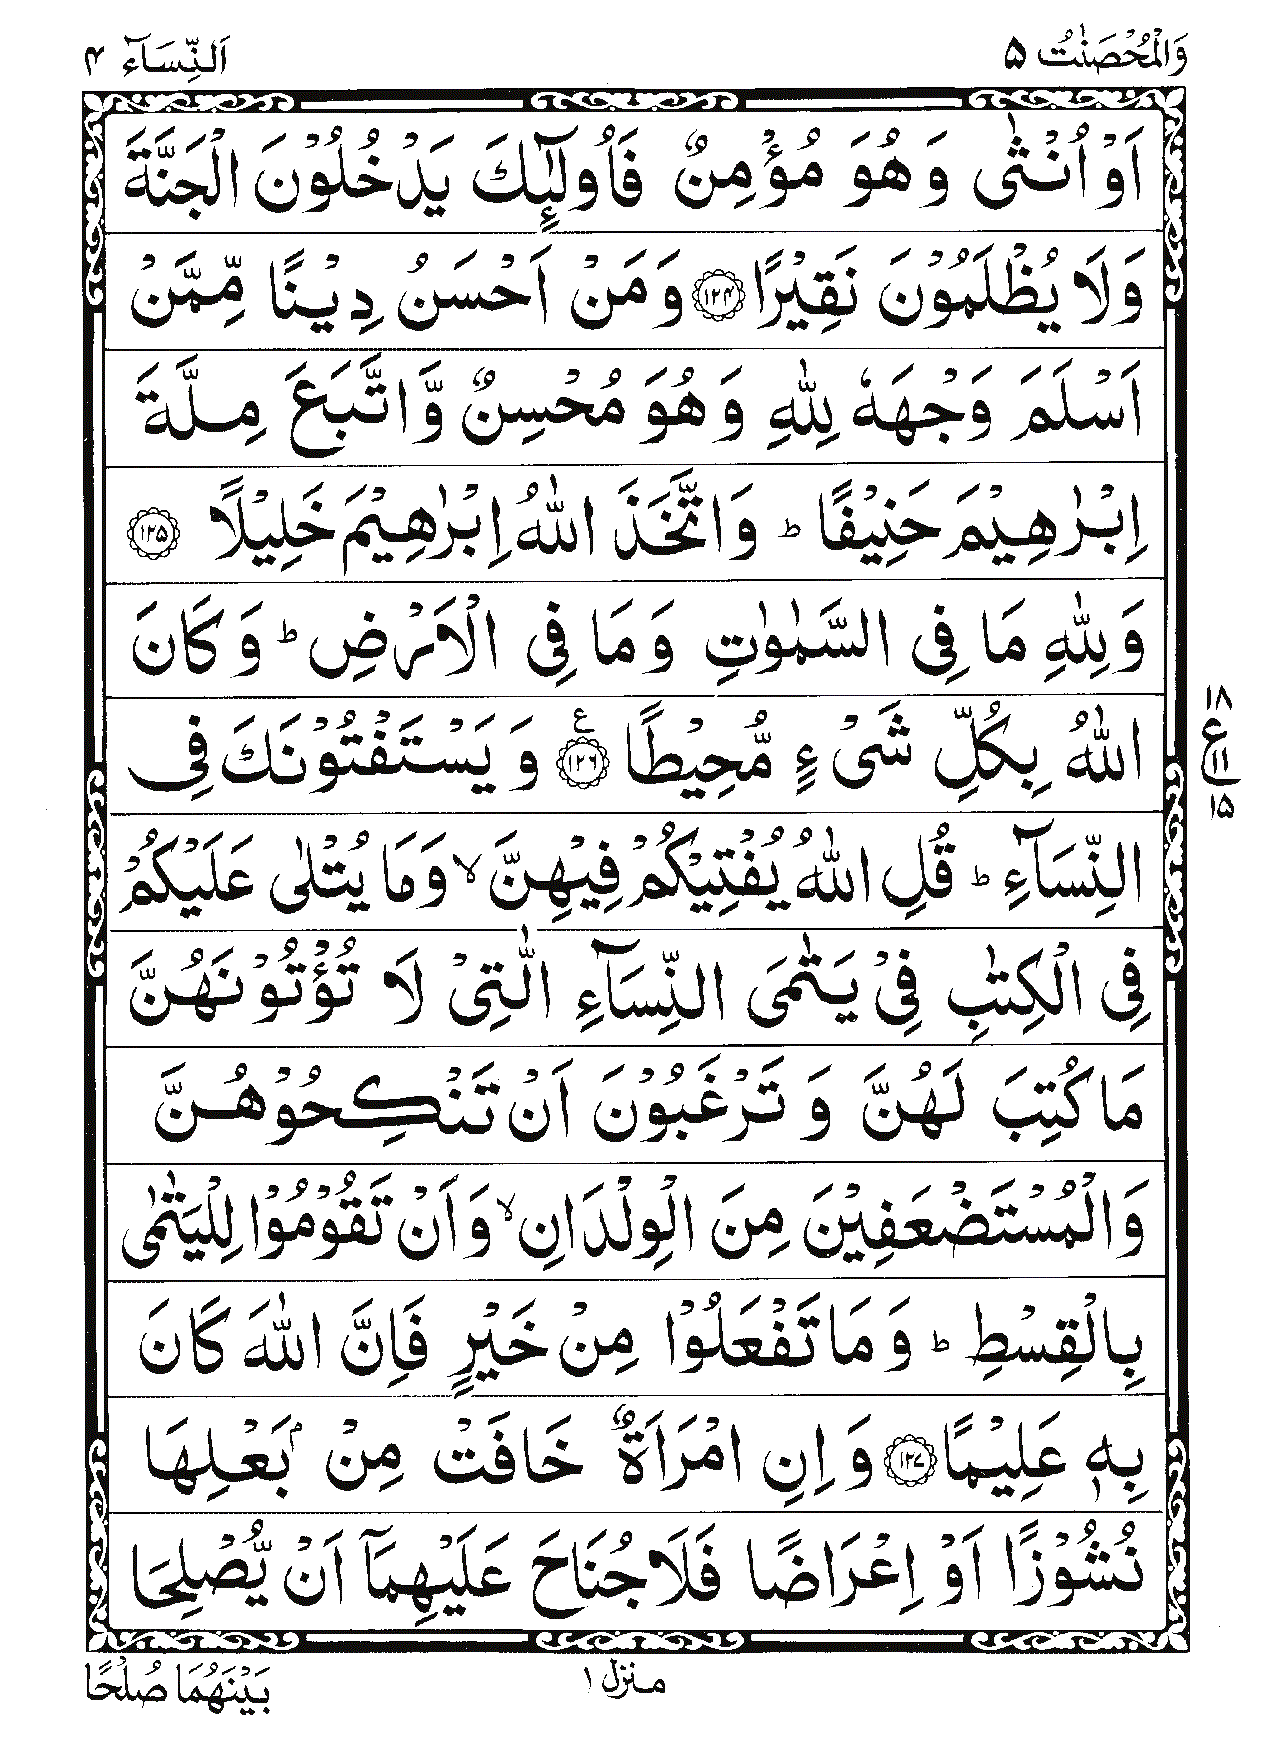 وَالْمُحْصَنٰتُ ۵
اَلنِّسَآء ۴
اَوْ اُنْثٰى وَ هُوَ مُؤْمِنٌ فَاُولٰٓئِكَ يَدْخُلُوْنَ الْجَنَّةَ
وَلَا يُظْلَمُوْنَ نَقِيْرًا ۱۲۴ وَ مَنْ اَحْسَنُ دِيْنًا مِّمَّنْ
اَسْلَمَ وَجْهَهٗ لِلّٰهِ وَ هُوَ مُحْسِنٌ وَّ اتَّبَعَ مِلَّةَ
اِبْرٰهِيْمَ حَنِيْفًا ؕ وَ اتَّخَذَ اللّٰهُ اِبْرٰهِيْمَ خَلِيْلًا ۱۲۵
وَ لِلّٰهِ مَا فِى السَّمٰوٰتِ وَ مَا فِى الْاَرْضِ ؕ وَ كَانَ
اللّٰهُ بِكُلِّ شَىْءٍ مُّحِيْطًا ۱۲۶ ع وَ يَسْتَفْتُوْنَكَ فِى
۱۸
ع ۱۱
۱۵
النِّسَآءِ ؕ قُلِ اللّٰهُ يُفْتِيْكُمْ فِيْهِنَّ ۙ وَمَا يُتْلٰى عَلَيْكُمْ
فِى الْكِتٰبِ فِىْ يَتٰمَى النِّسَآءِ الّٰتِىْ لَا تُؤْتُوْنَهُنَّ
مَا كُتِبَ لَهُنَّ وَ تَرْغَبُوْنَ اَنْ تَنْكِحُوْهُنَّ
وَالْمُسْتَضْعَفِيْنَ مِنَ الْوِلْدَانِ ۙ وَاَنْ تَقُوْمُوْا لِلْيَتٰمٰى
بِالْقِسْطِ ؕ وَ مَا تَفْعَلُوْا مِنْ خَيْرٍ فَاِنَّ اللّٰهَ كَانَ
بِهٖ عَلِيْمًا ۱۲۷ وَ اِنِ امْرَاَةٌ خَافَتْ مِنْۢ بَعْلِهَا
نُشُوْزًا اَوْ اِعْرَاضًا فَلَا جُنَاحَ عَلَيْهِمَآ اَنْ يُّصْلِحَا
منزل ۱
بَيْنَهُمَا صُلْحًا